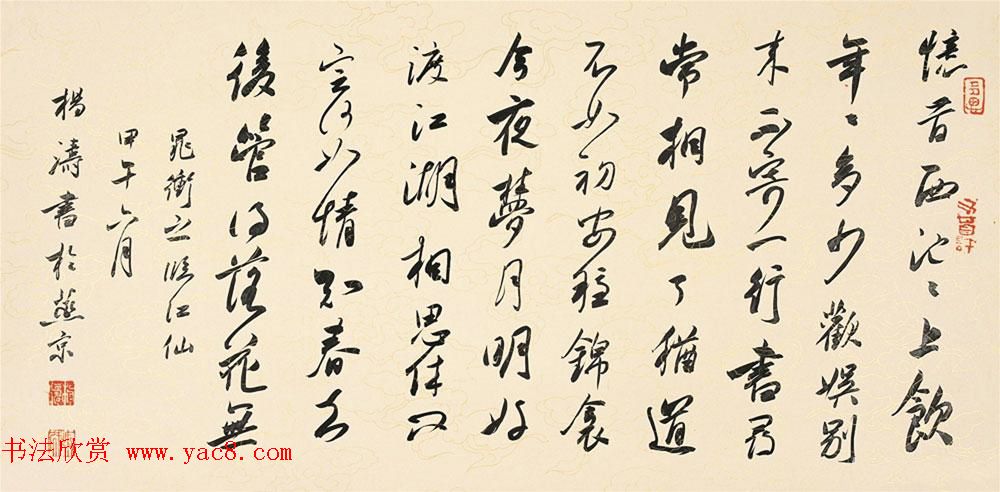 憶昔西池〻上飲
年〻多少歡娛別
来不寄一行書尋
常相見了猶道
不如初安穩錦衾
今夜夢月明好
渡江湖相思休問
定何如情知春去
後管得落花無
晁衝之臨江仙
甲午六月
楊濤書於燕京
书法欣赏 www.yac8.com